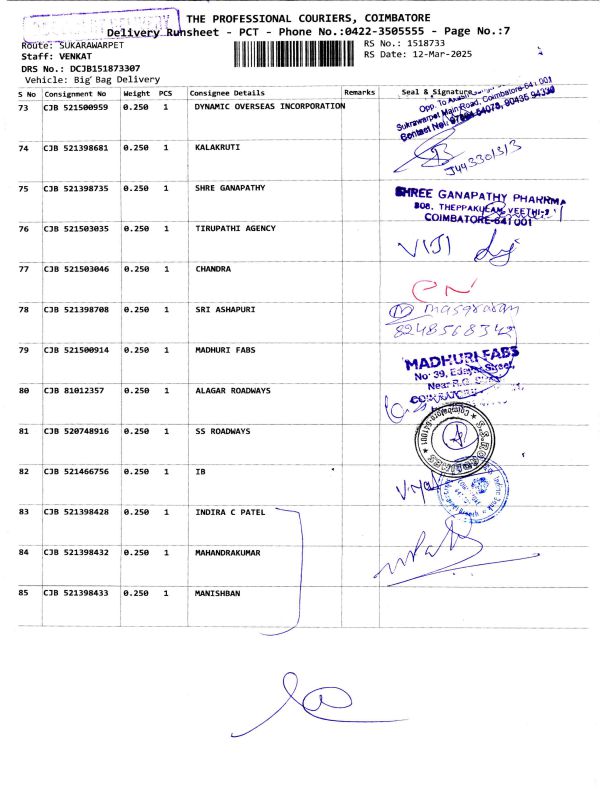 THE PROFESSIONAL COURIERS, COIMBATORE
Delivery Runsheet - PCT - Phone No.:0422-3505555 - Page No.:7
Route: SUKARAWARPET
RS No.: 1518733
Staff: VENKAT
RS Date: 12-Mar-2025
DRS No.: DCJB151873307
Vehicle: Big Bag Delivery
S No Consignment No Weight PCS Consignee Details Remarks Seal & Signature
73 CJB 521500959 0.250 1 DYNAMIC OVERSEAS INCORPORATION
Sukrawarpet Main Road, Coimbatore-641 001
74 CJB 521398681 0.250 1 KALAKRUTI
75 CJB 521398735 0.250 1 SHRE GANAPATHY
SHREE GANAPATHY PHARRMA
COIMBATORE-641001
76 CJB 521503035 0.250 1 TIRUPATHI AGENCY
VIJI
77 CJB 521503046 0.250 1 CHANDRA
78 CJB 521398708 0.250 1 SRI ASHAPURI
79 CJB 521500914 0.250 1 MADHURI FABS
MADHURI FABS
80 CJB 81012357 0.250 1 ALAGAR ROADWAYS
81 CJB 520748916 0.250 1 SS ROADWAYS
82 CJB 521466756 0.250 1 IB
83 CJB 521398428 0.250 1 INDIRA C PATEL
84 CJB 521398432 0.250 1 MAHANDRAKUMAR
85 CJB 521398433 0.250 1 MANISHBAN